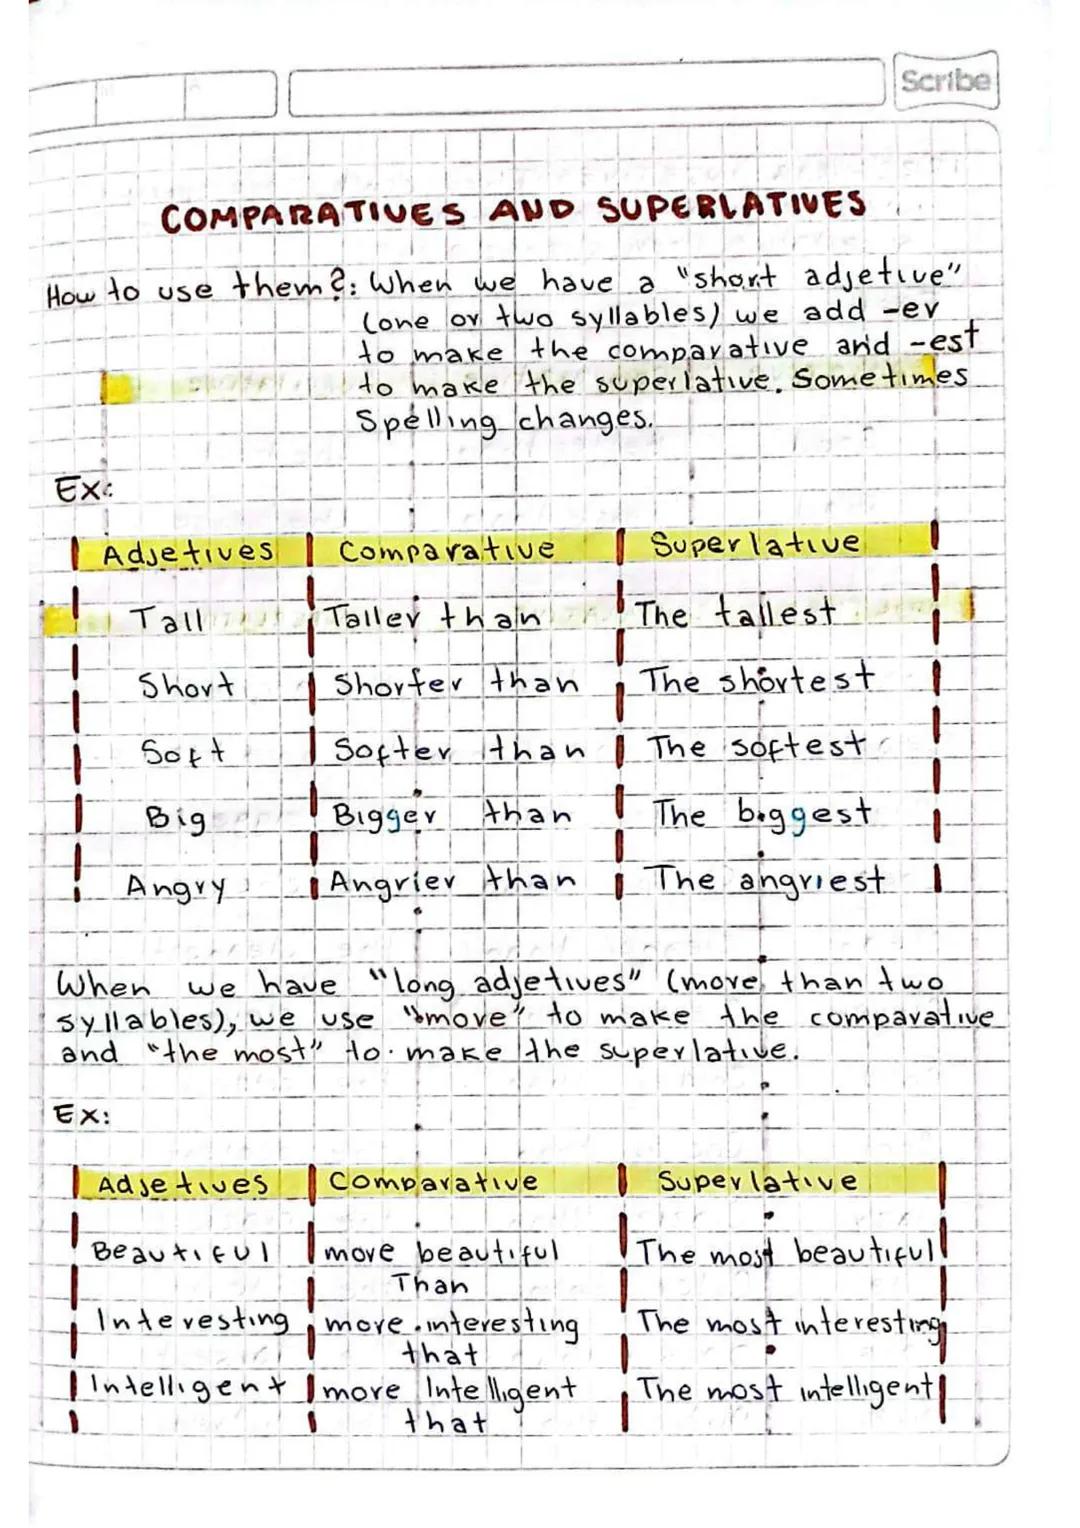 Scribe
COMPARATIVES AND SUPERLATIVES
How to use them?: When we have a "short adjetive"
(one or two syllables) we add -er
to make the comparative and -est
to make the superlative. Sometimes
Spelling changes.
Ex:
Adjetives Comparative Superlative
Tall Taller than The tallest
Short Shorter than The shortest
Soft Softer than The softest
Big Bigger than The biggest
Angry Angrier than The angriest
When we have "long adjetives" (more than two
syllables), we use "more" to make the comparative
and "the most" to make the superlative.
Ex:
Adjetives Comparative Superlative
Beautiful more beautiful The most beautiful
Than
Interesting more interesting The most interesting
that
Intelligent more Intelligent The most intelligent
that